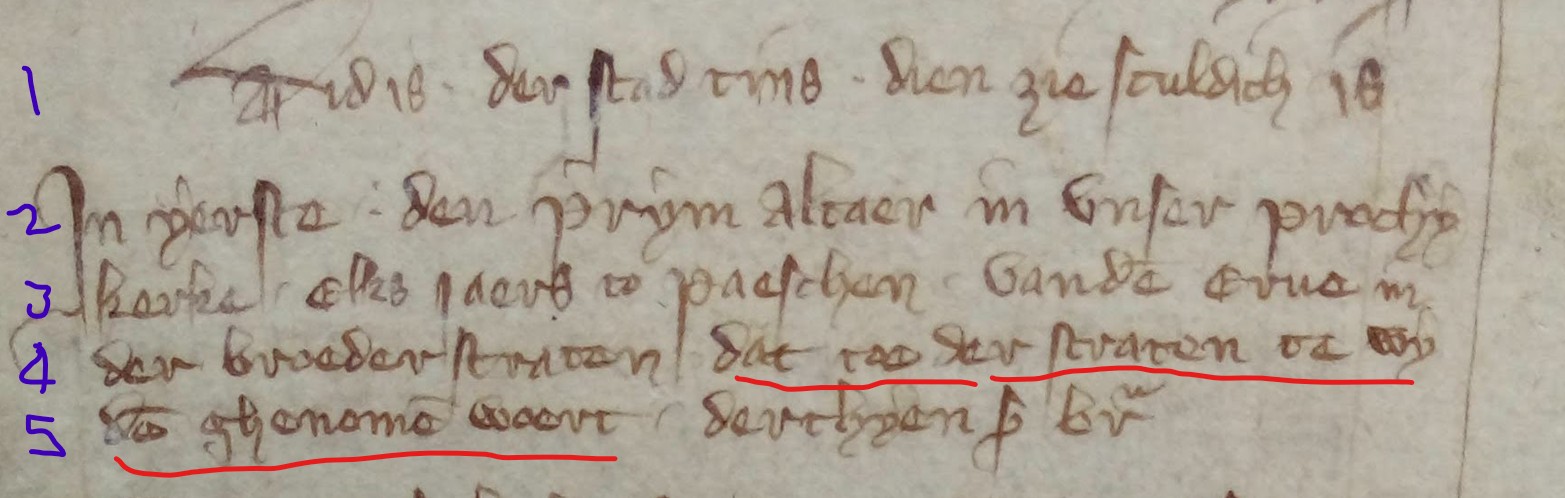 1 Dit is der stad tins dien zie sculdich is
2 In yerste den prym altaer in vnser prochy
3 kerke elks jaers to paeschen vande erue in
4 der broederstraten dat toe der straten te wy
5 de ghenome woert derthyen s br